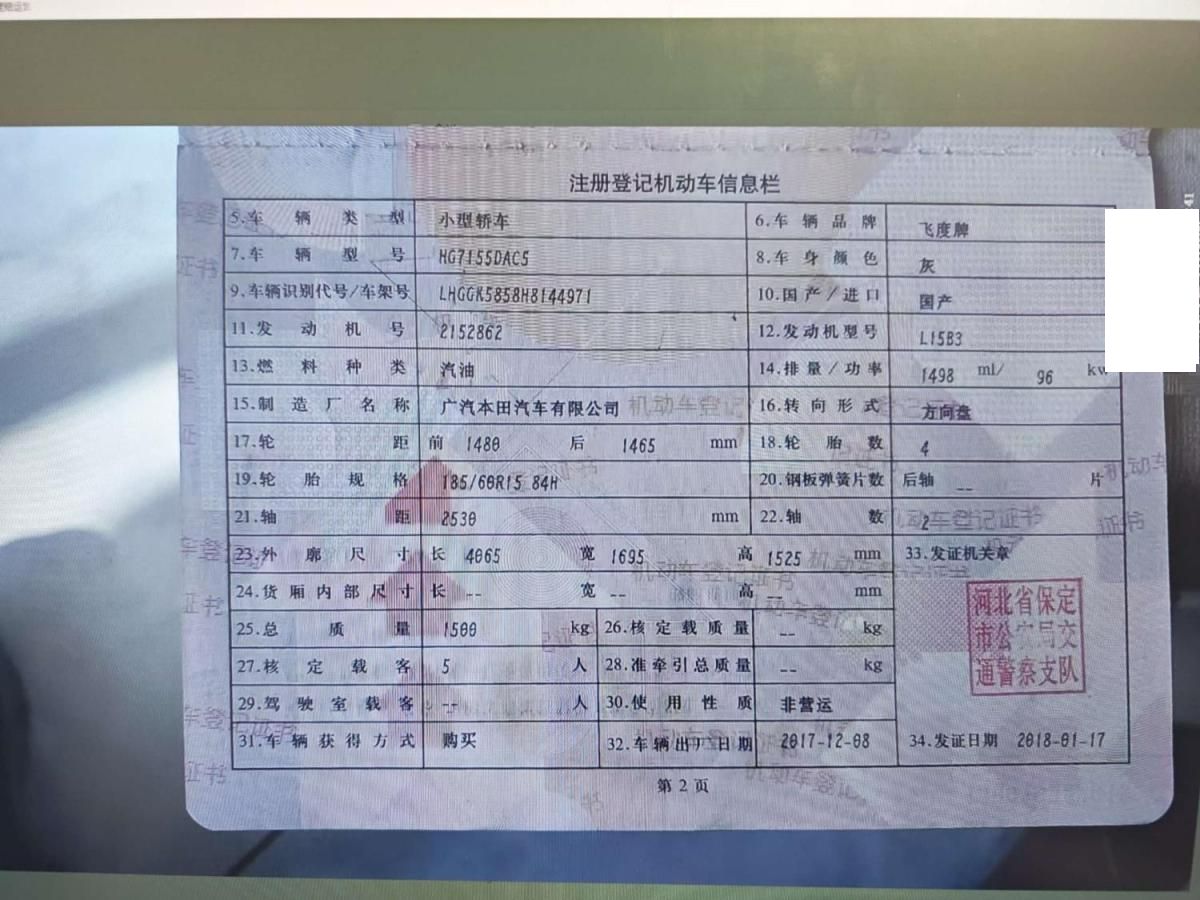 注册登记机动车信息栏
5.车辆类型 小型轿车 6.车辆品牌 飞度牌
7.车辆型号 HG7155DAC5 8.车身颜色 灰
9.车辆识别代号/车架号 LHGGK5858H8144971 10.国产/进口 国产
11.发动机号 2152862 12.发动机型号 L15B3
13.燃料种类 汽油 14.排量/功率 1498 ml/ 96 kw
15.制造厂名称 广汽本田汽车有限公司 16.转向形式 方向盘
17.轮距 前 1480 后 1465 mm 18.轮胎数 4
19.轮胎规格 185/60R15 84H 20.钢板弹簧片数 后轴 -- 片
21.轴距 2530 mm 22.轴数 2
23.外廓尺寸 长 4065 宽 1695 高 1525 mm 33.发证机关章
24.货厢内部尺寸 长 -- 宽 -- 高 -- mm
25.总质量 1500 kg 26.核定载质量 -- kg
27.核定载客 5 人 28.准牵引总质量 -- kg
29.驾驶室载客 -- 人 30.使用性质 非营运
31.车辆获得方式 购买 32.车辆出厂日期 2017-12-08 34.发证日期 2018-01-17
河北省保定
市公安局交
通警察支队
第2页